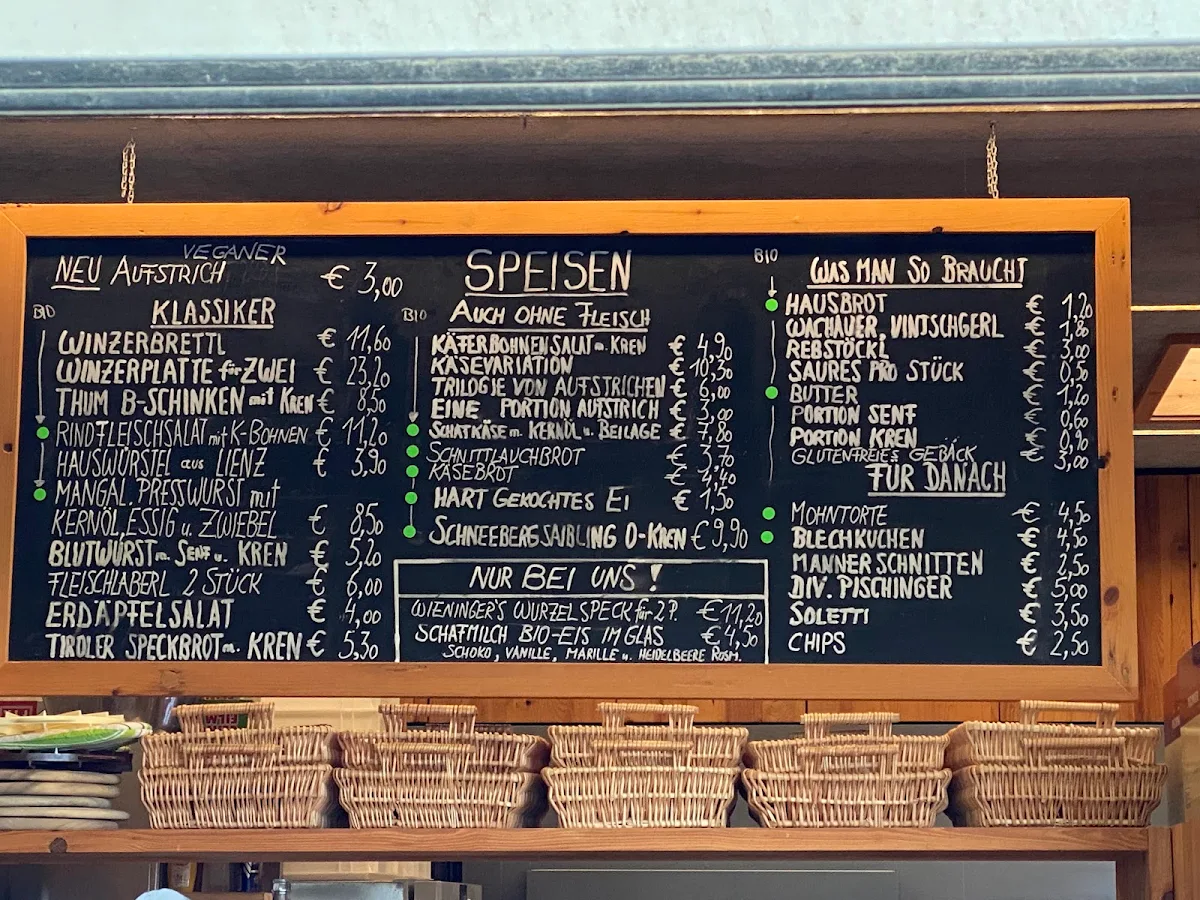 VEGANER
NEU AUFSTRICH € 3,00
BIO
KLASSIKER
WINZERBRETTL € 11,60
WINZERPLATTE für ZWEI € 23,20
THUM B-SCHINKEN mit KREN € 8,50
RINDFLEISCHSALAT mit K-BOHNEN € 11,20
HAUSWÜRSTEL aus LIENZ € 3,90
MANGAL. PRESSWURST mit
KERNÖL, ESSIG u. ZWIEBEL € 8,50
BLUTWURST m. SENF u. KREN € 5,20
FLEISCHLABERL 2 STÜCK € 6,00
ERDÄPFELSALAT € 4,00
TIROLER SPECKBROT m. KREN € 5,30
SPEISEN
BIO
AUCH OHNE FLEISCH
KÄFERBOHNENSALAT m. KREN € 4,90
KÄSEVARIATION € 10,30
TRILOGIE VON AUFSTRICHEN € 6,00
EINE PORTION AUFSTRICH € 3,00
SCHAFKÄSE m. KERNÖL u. BEILAGE € 7,80
SCHNITTLAUCHBROT € 3,70
KÄSEBROT € 4,40
HART GEKOCHTES EI € 1,50
SCHNEEBERGSAIBLING O-KREN € 9,90
NUR BEI UNS!
WIENINGER'S WURZELSPECK für 2 P. € 11,20
SCHAFMILCH BIO-EIS IM GLAS € 4,50
SCHOKO, VANILLE, MARILLE u. HEIDELBEERE ROSM.
BIO
WAS MAN SO BRAUCHT
HAUSBROT € 1,20
WACHAUER, VINTSCHGERL € 1,80
REBSTÖCKL € 3,00
SAURES PRO STÜCK € 0,50
BUTTER € 1,20
PORTION SENF € 0,60
PORTION KREN € 0,90
GLUTENFREIES GEBÄCK € 3,00
FÜR DANACH
MOHNTORTE € 4,50
BLECHKUCHEN € 4,50
MANNER SCHNITTEN € 2,50
DIV. PISCHINGER € 5,00
SOLETTI € 3,50
CHIPS € 2,50